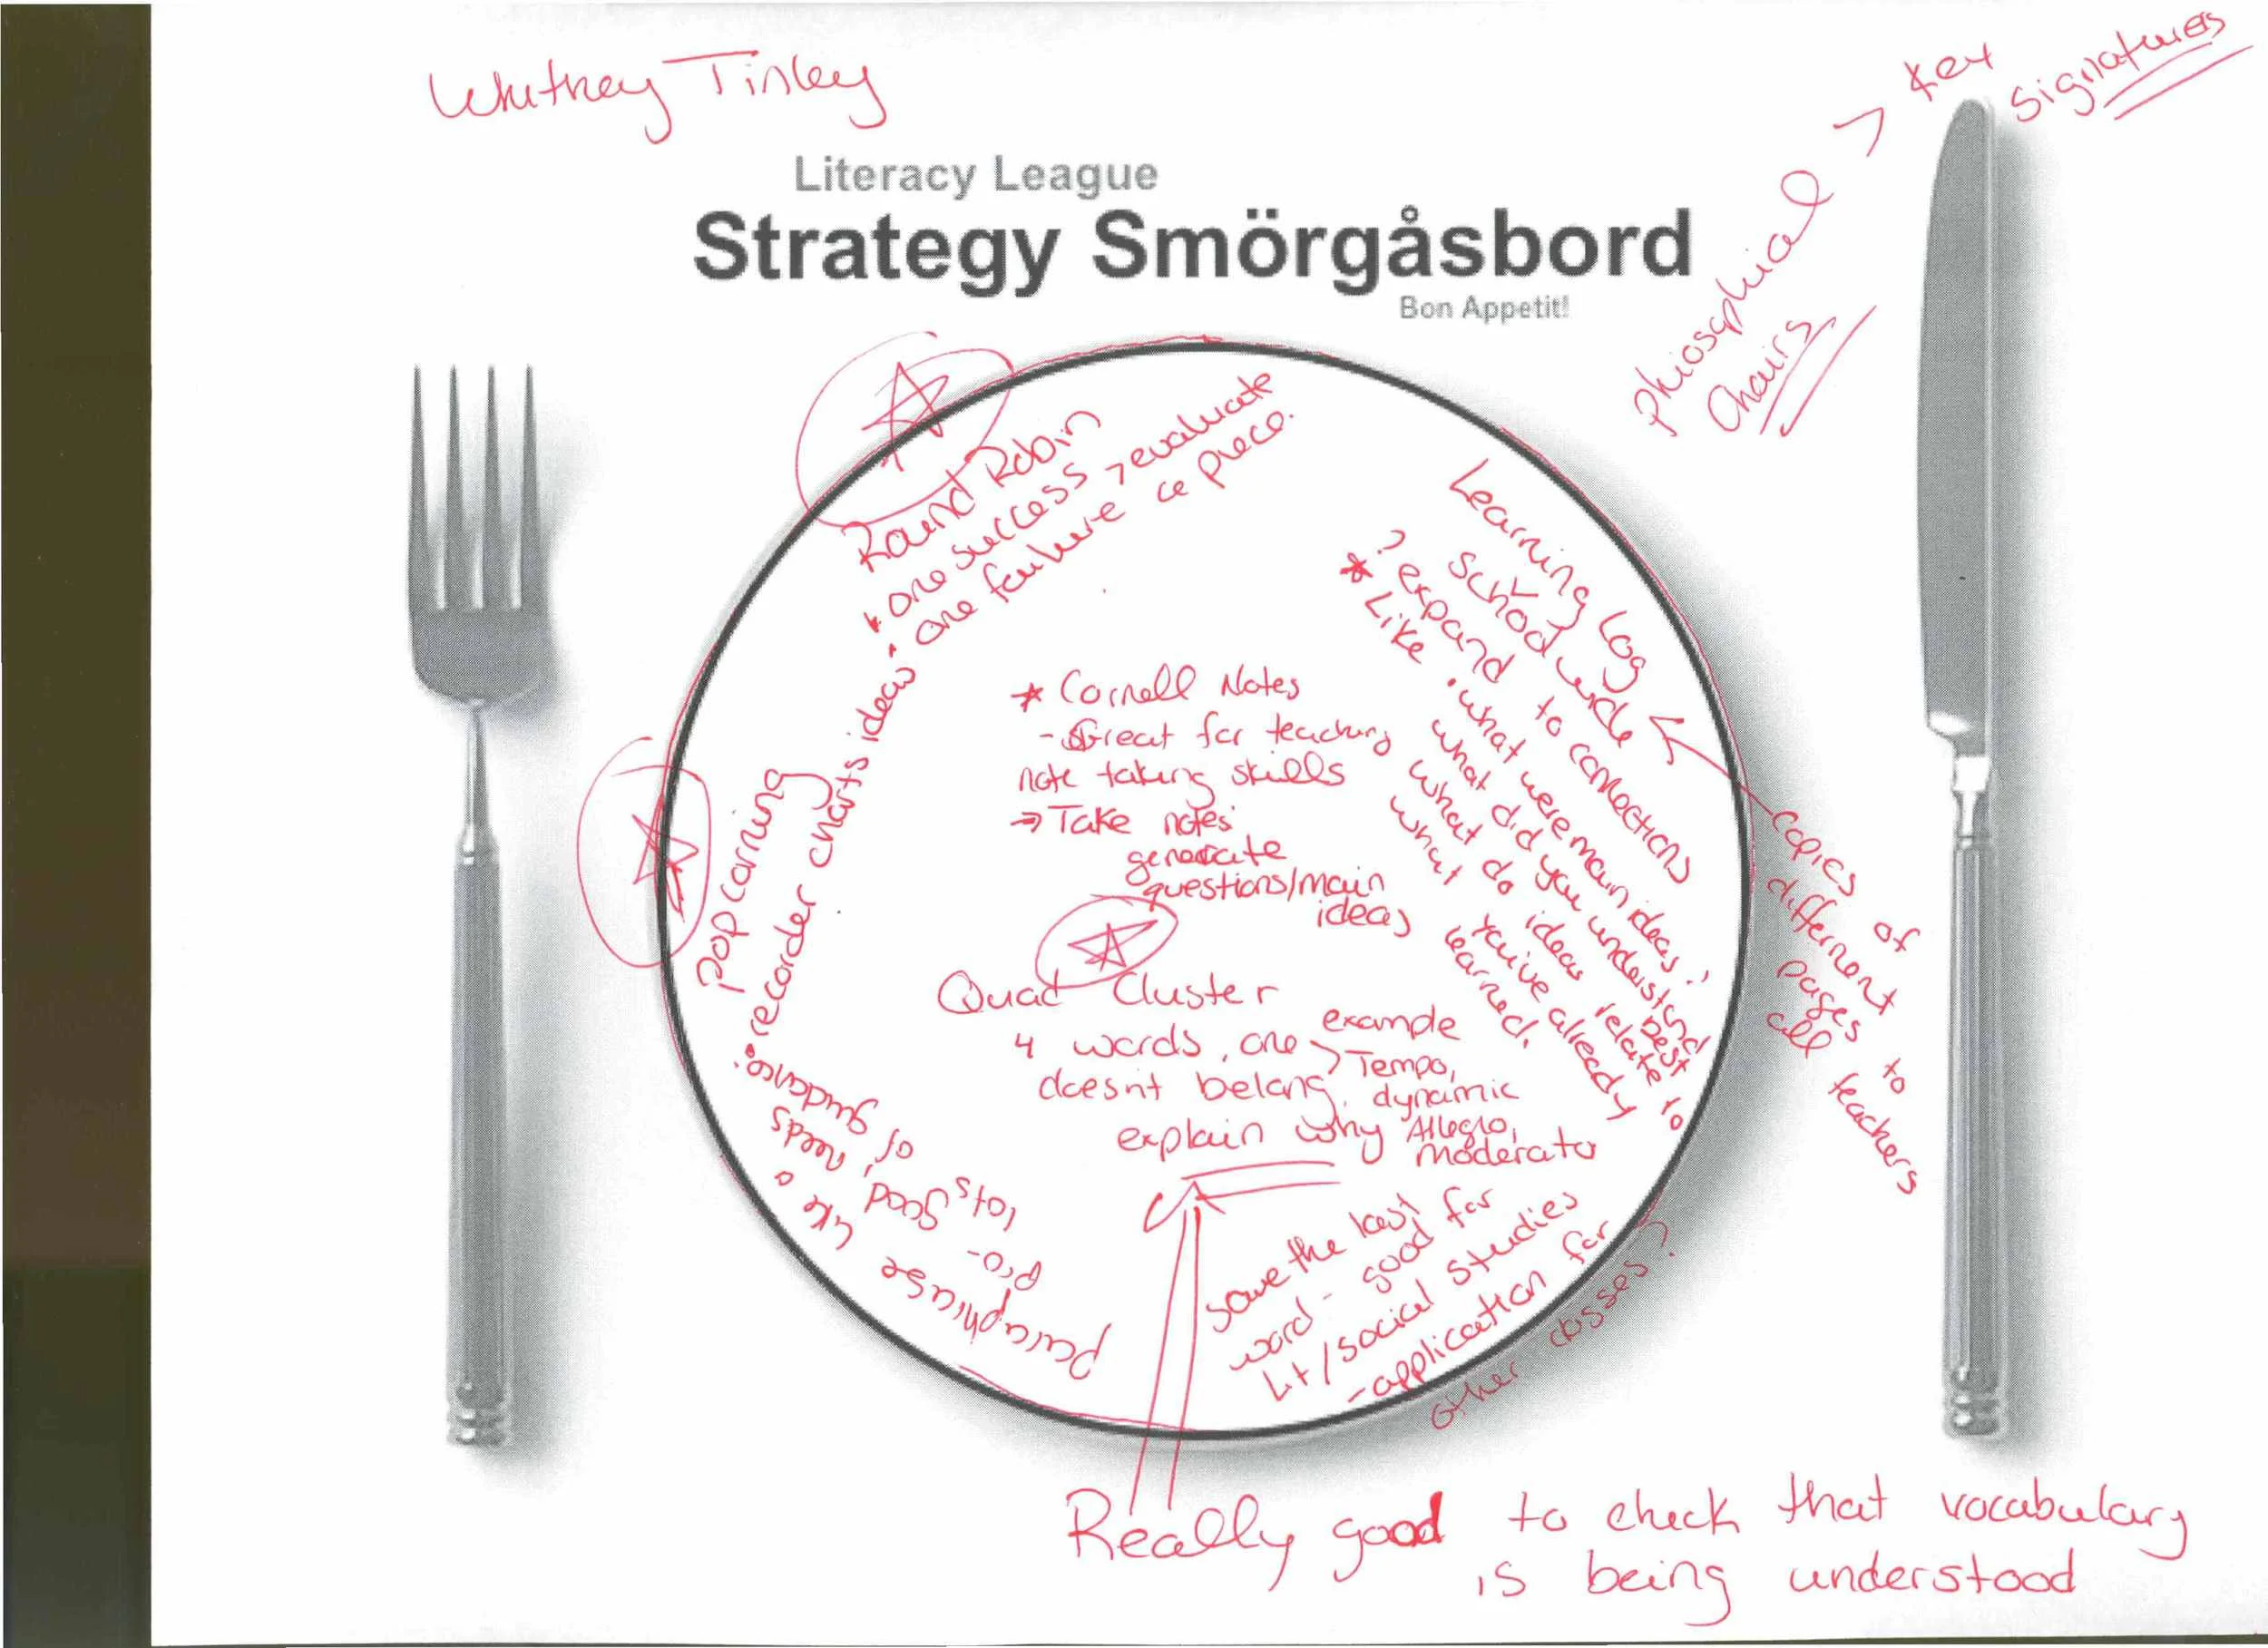 Whitney Tinley
Literacy League
Strategy Smörgåsbord
Bon Appetit!
phiosophical > Key
Chairs
Signatures
Round Robin
• one success > evaluate
• one failure a piece.
popcorning
• recorder charts ideas
paraphrase like a
pro-
good, needs
lots of guidance.
* Cornell Notes
- Great for teaching
note taking skills
→ Take notes
generate
questions/main
ideas
Quad Cluster
4 words, one
doesnt belong.
explain why
example
> Tempo,
dynamic
Allegro,
Moderato
Learning Log
School wide
? expand to connections
* Like • what were main ideas?
what did you understand best
what do ideas relate to
what you've already
learned.
copies of
different
pages to
all teachers
Save the last
word - good for
Lit/social studies
- application for
other classes?
Really good to check that vocabulary
is being understood